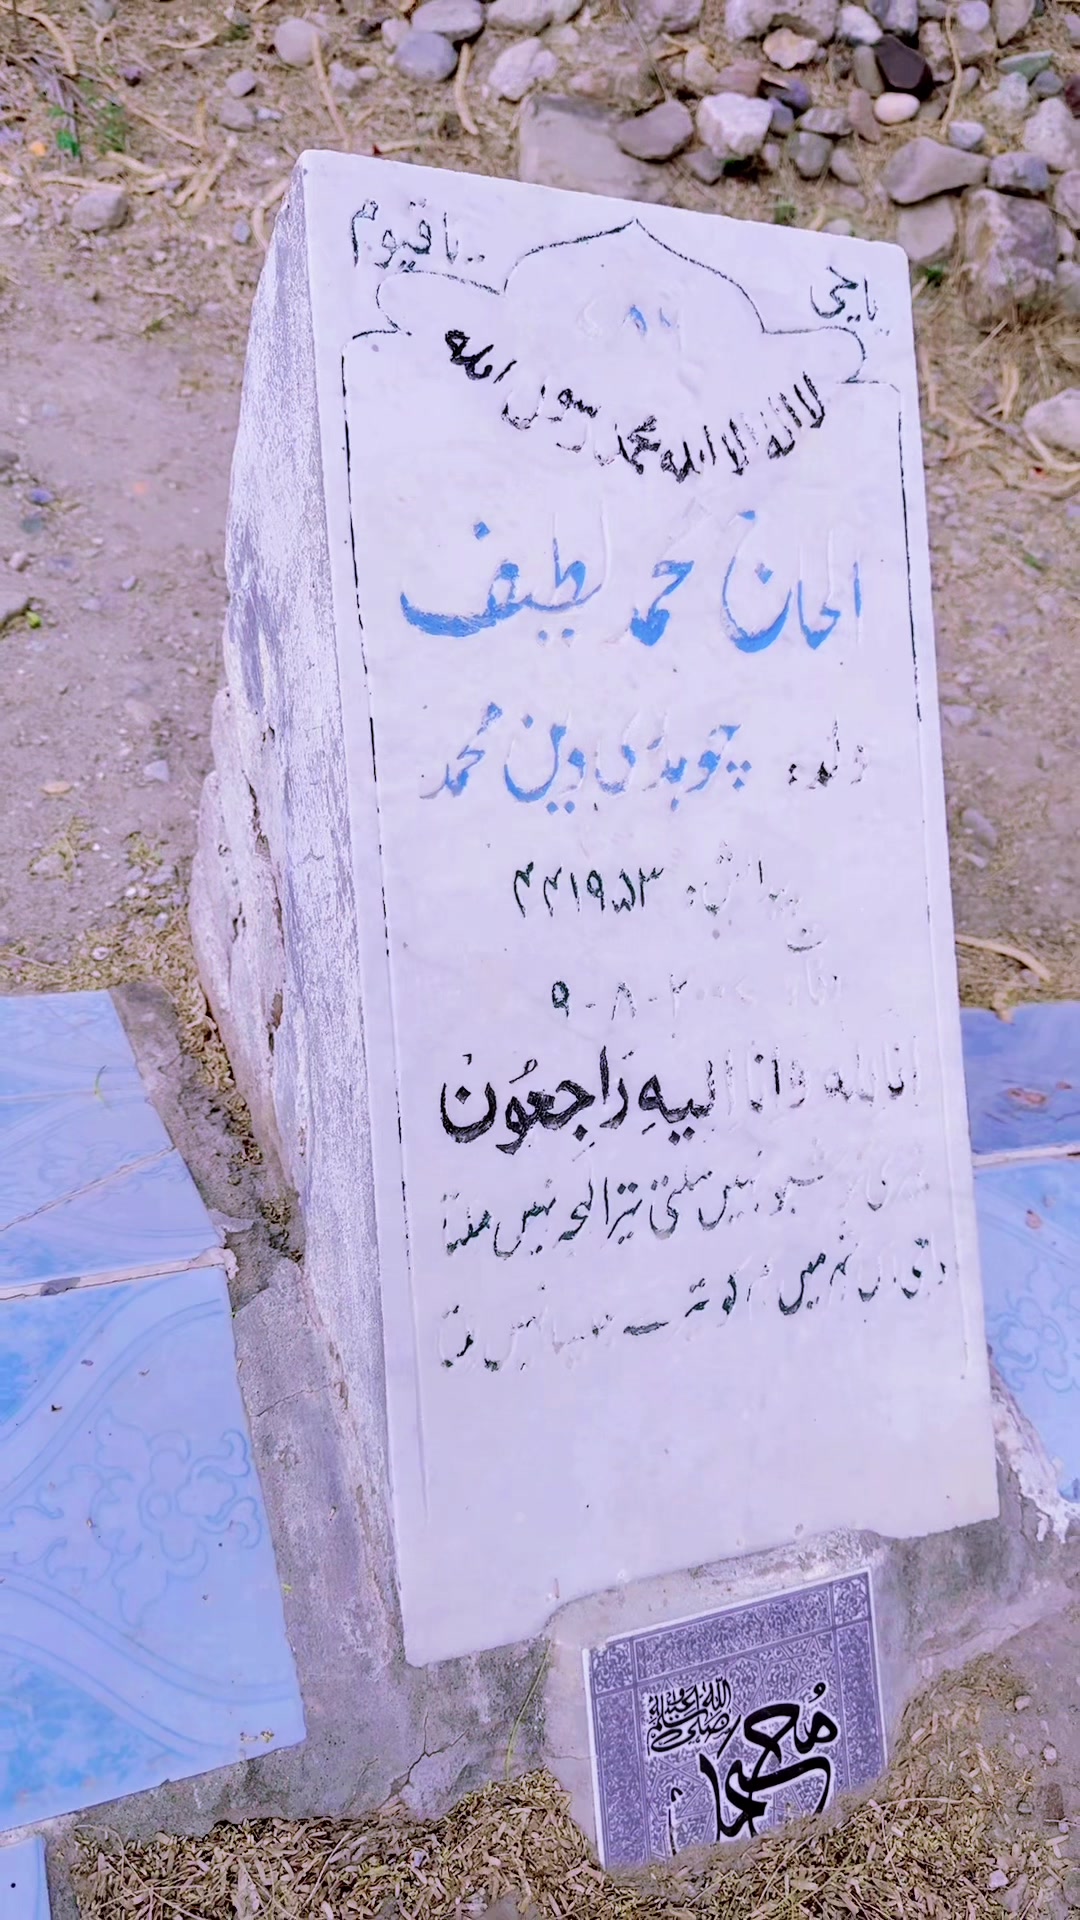 یا حی
یا قیوم
۷۸۶
لا الہ الا اللہ محمد رسول اللہ
الحاج محمد لطیف
ولد: چوہدری دین محمد
پیدائش: ۴ ۴ ۱۹۵۳
وفات ۹-۸-۲۰۰
انا للہ وانا الیہِ رَاجِعُوْن
نہیں ملتی تیرا لہجہ نہیں ملتا
شہر میں کوئی نہیں ملتا
مُحَمَّد
صلى الله عليه وسلم